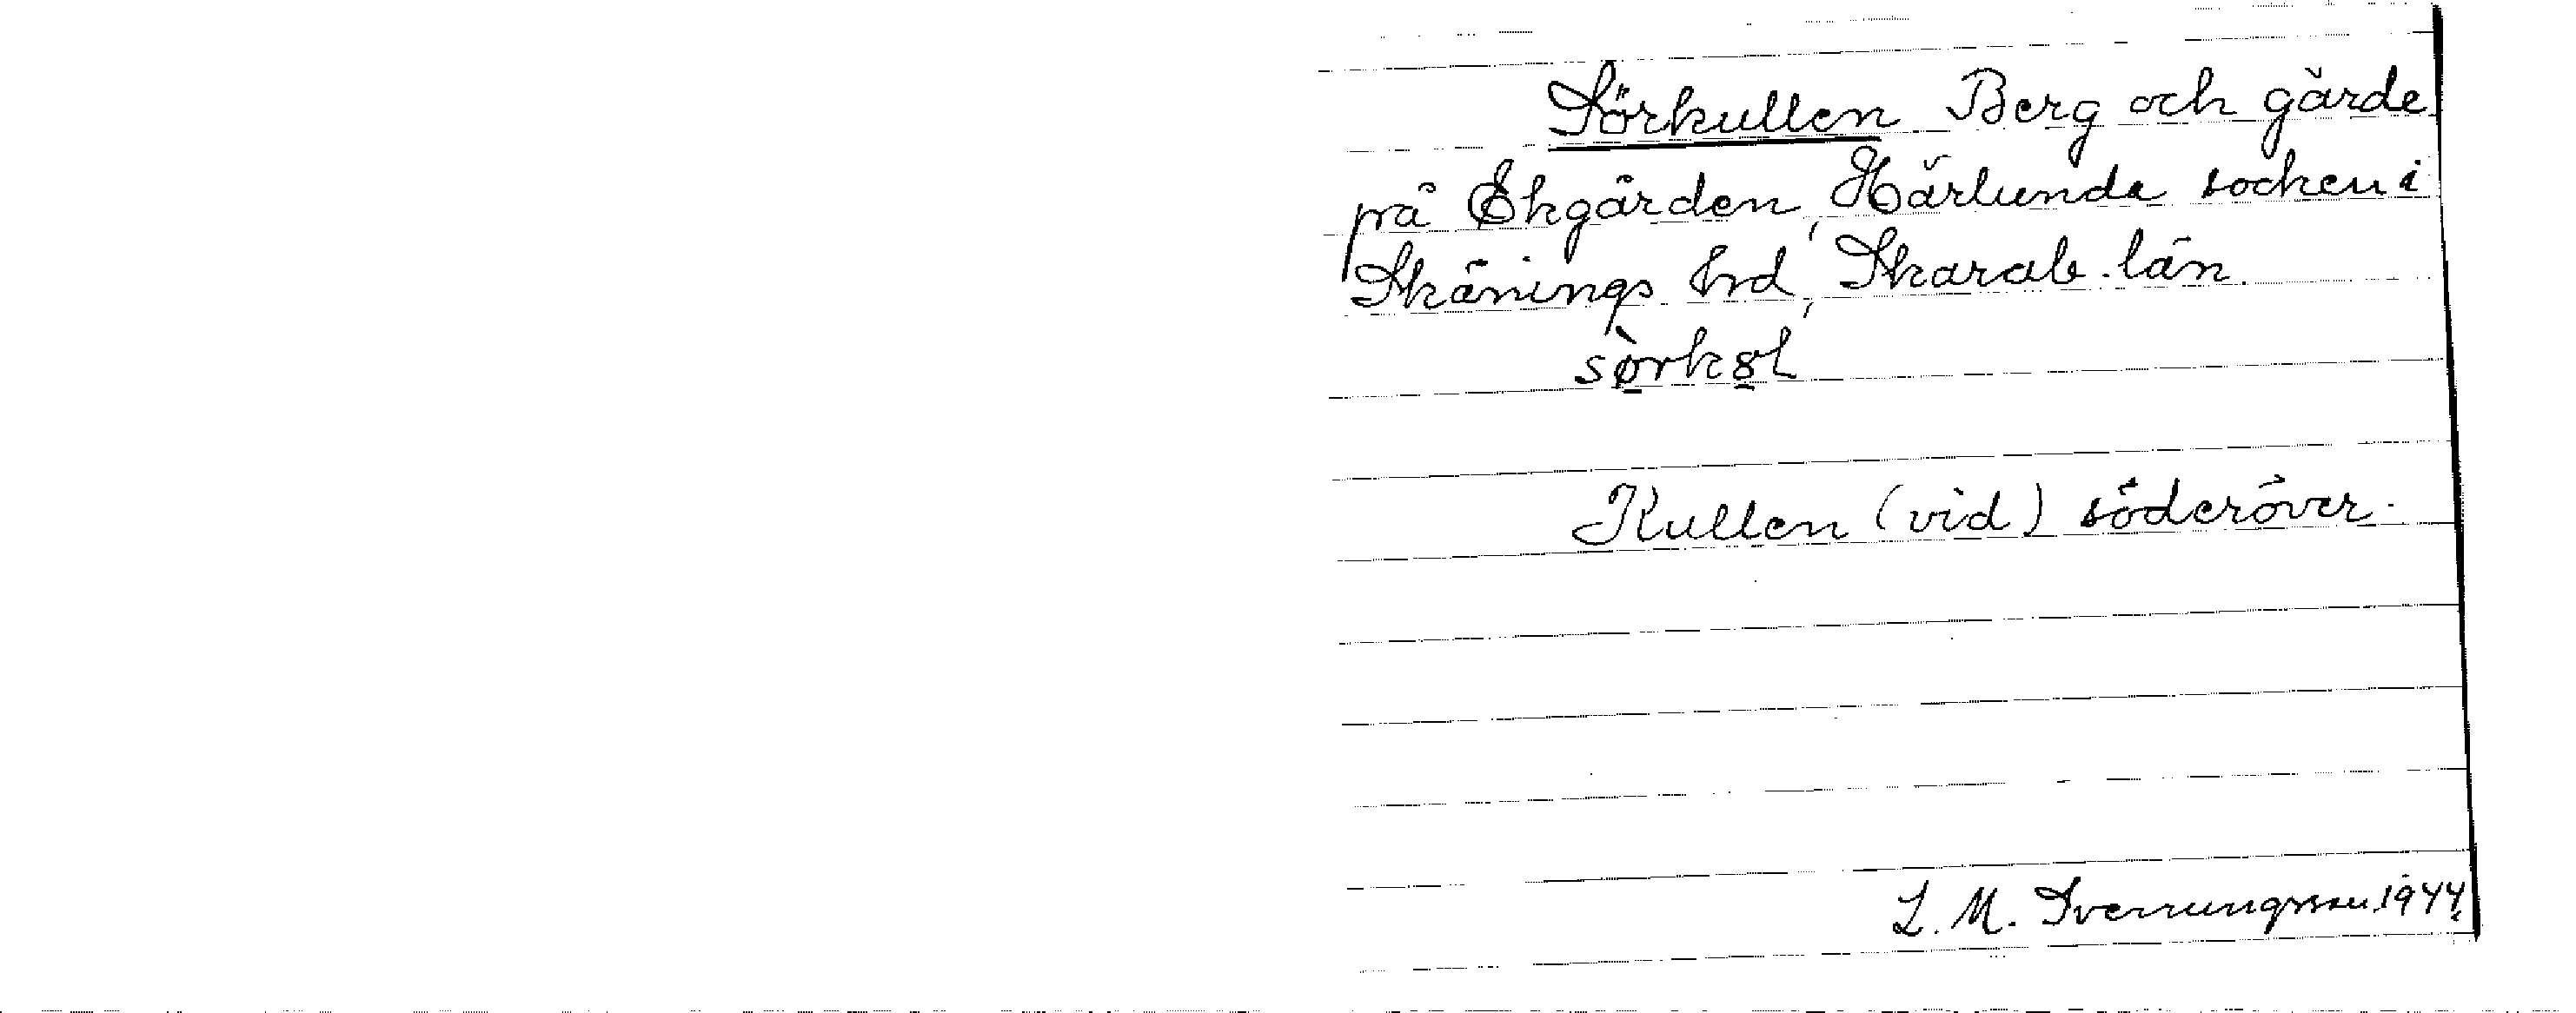 Sörkullen Berg och gärde
på Ekgården, Härlunda socken i
Skånings hrd, Skarab. län.
Kullen (vid) söderöver.
L. M. Sverrungsson 1944.